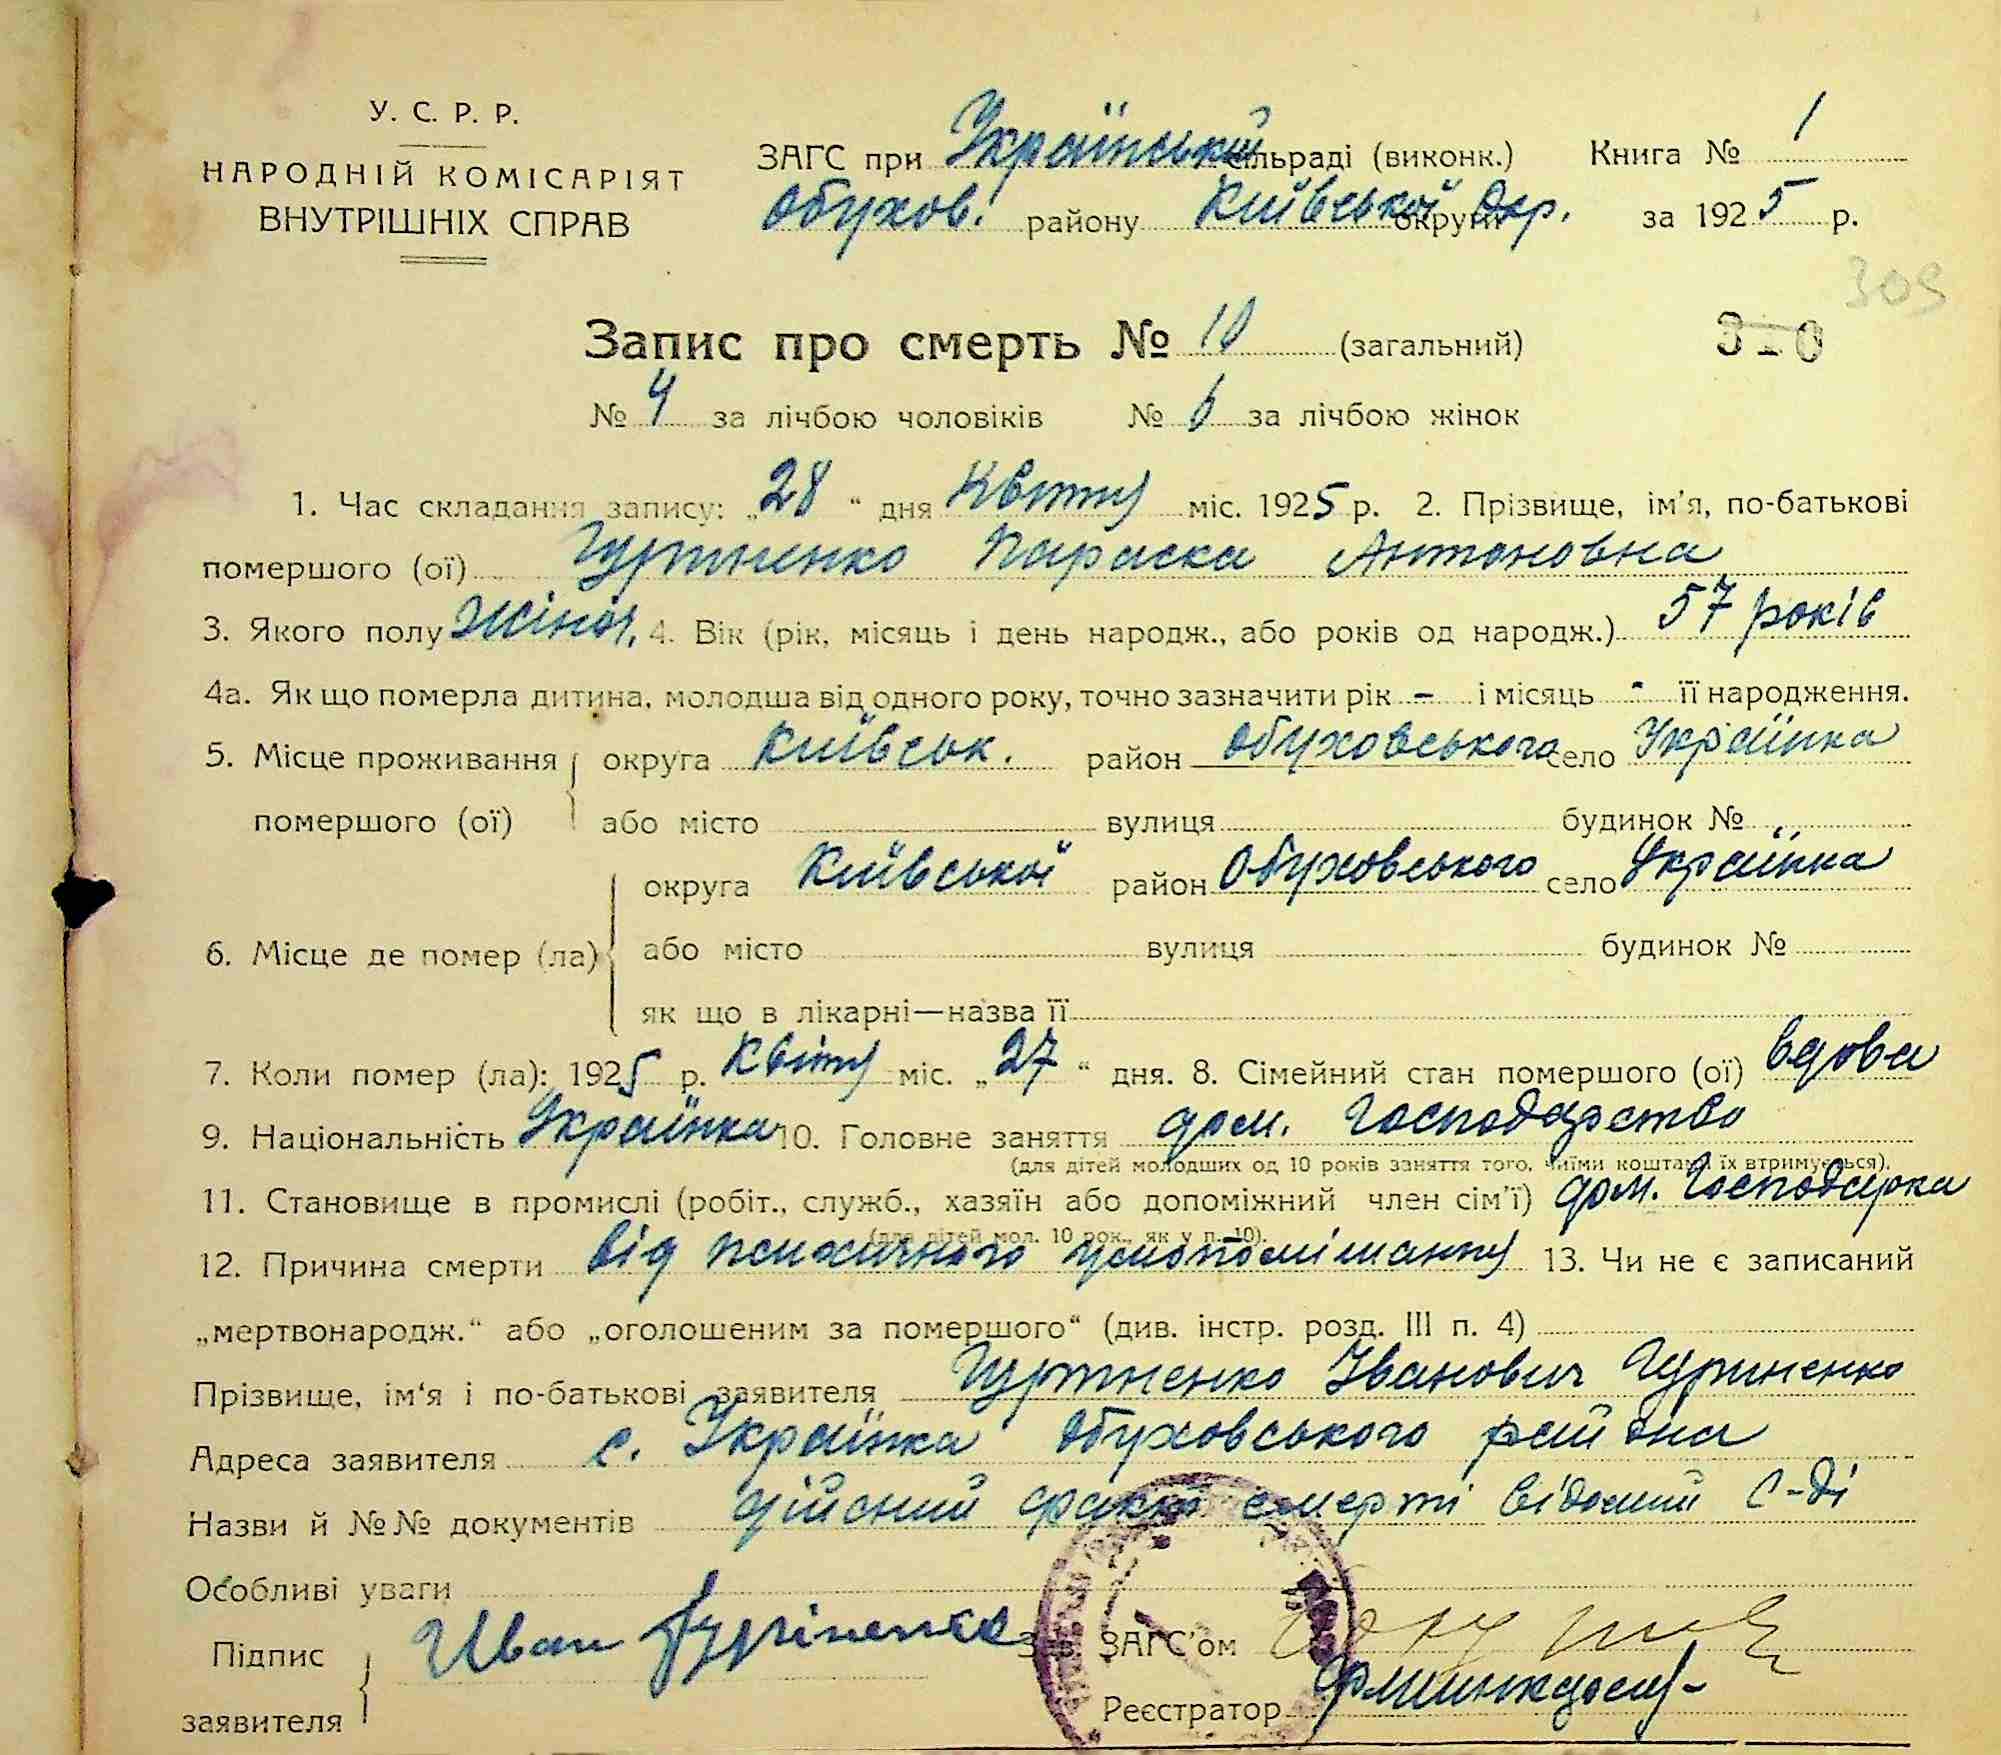 У. С. Р. Р.
НАРОДНІЙ КОМІСАРІЯТ
ВНУТРІШНІХ СПРАВ
ЗАГС при Український сільраді (виконк.) Книга № 1
Обухов. району Київської Окр. округи за 1925 р.
309
310
Запис про смерть № 10 (загальний)
№ 4 за лічбою чоловіків № 6 за лічбою жінок
1. Час складання запису: „28“ дня Квітня міс. 1925 р. 2. Прізвище, ім'я, по-батькові
помершого (ої) Параска Антоновна
3. Якого полу Жіноч. 4. Вік (рік, місяць і день народж., або років од народж.) 57 років
4а. Як що померла дитина, молодша від одного року, точно зазначити рік – і місяць - її народження.
5. Місце проживання округа Київськ. район Обуховського село Українка
помершого (ої) або місто вулиця будинок №
округа Київської район Обуховського село Українка
6. Місце де помер (ла) або місто вулиця будинок №
як що в лікарні—назва її
7. Коли помер (ла): 1925 р. Квітня міс. „27“ дня. 8. Сімейний стан помершого (ої) вдова
9. Національність Українка 10. Головне заняття дом. Господарство
(для дітей молодших од 10 років заняття того, чиїми коштами їх втримується).
11. Становище в промислі (робіт., служб., хазяїн або допоміжний член сім'ї) дом. Господарка
(для дітей мол. 10 рок., як у п. 10).
12. Причина смерти від психичного умопомішання 13. Чи не є записаний
„мертвонародж.“ або „оголошеним за помершого“ (див. інстр. розд. III п. 4)
Прізвище, ім'я і по-батькові заявителя Іванович
Адреса заявителя с. Українка Обуховського района
Назви й №№ документів дійсний факт смерті відомий С-ді
Особливі уваги
Підпис Иван Зав. ЗАГС'ом
заявителя Реєстратор